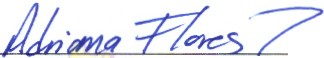 Adriana Flores